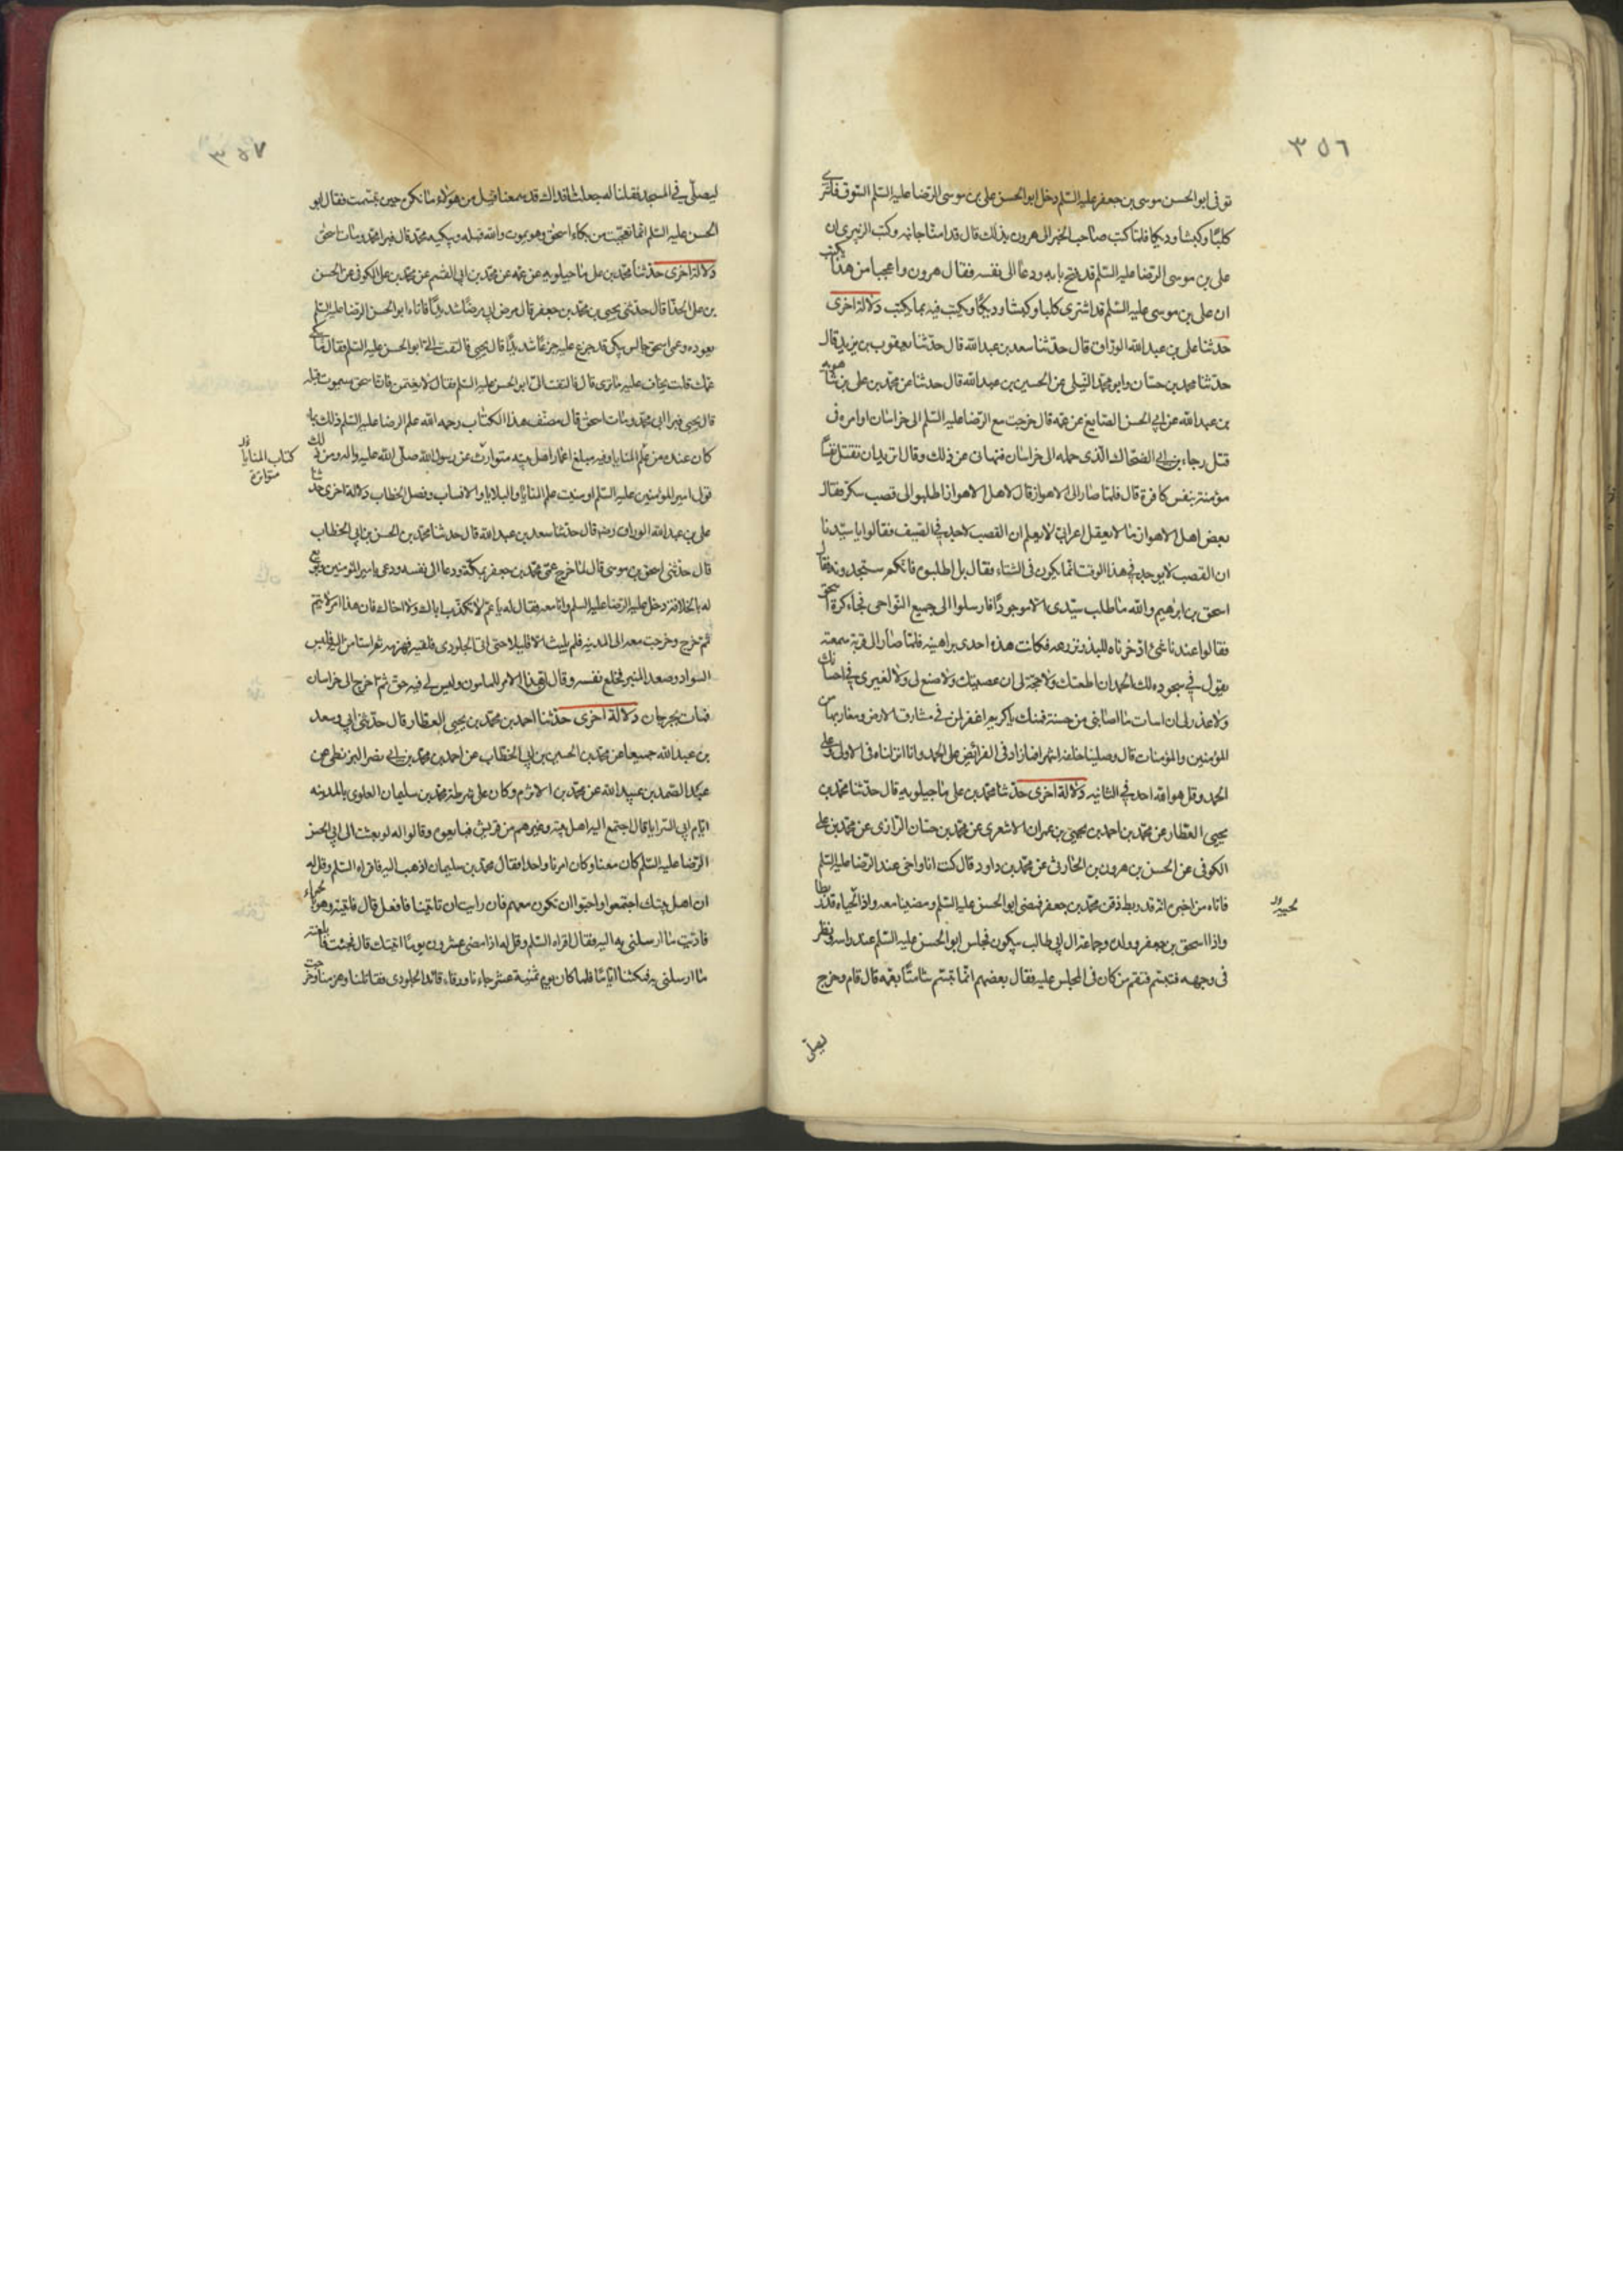 ٣٥٦
توفى ابو الحسن موسى بن جعفر عليه السّلم دخل ابو الحسن على بن موسى الرضا عليه السّلم السّوق فاشترى
كلبًا وكبشا وديكا فلمّا كتب صاحب الخبر الى هرون بذلك قال قد امنّا جانبه وكتب الزبيرى ان
على بن موسى الرضا عليه السّلم قد فتح بابه ودعا الى نفسه فقال هرون واعجبا من هذا يكتب
ان على بن موسى عليه السّلم قد اشترى كلبا وكبشا وديكًا ويكتب فيه بما يكتب دلالة اخرى
حدثنا على بن عبد الله الوراق قال حدّثنا سعد بن عبد الله قال حدّثنا يعقوب بن يزيد قال
حدّثنا محمد بن حسّان وابو محمّد النيلى عن الحسين بن عبد الله قال حدثنا عن محمّد بن على بن شاهويه
بن عبد الله عن ابى الحسن الصّايغ عن عمّه قال خرجت مع الرّضا عليه السّلم الى خراسان اوامره فى
قتل رجاء بن ابى الضحّاك الّذى حمله الى خراسان فنهانى عن ذلك وقال اتريد ان تقتل نفسًا
مؤمنة بنفس كافرة قال فلمّا صار الى الاهواز قال لاهل الاهواز اطلبوا لى قصب سكّر فقال
بعض اهل الاهواز ممّا لا يعقل اعرابىّ لا يعلم ان القصب لا يوجد فى الصّيف فقالوا يا سيّدنا
ان القصب لا يوجد فى هذا الوقت انّما يكون فى الشتاء فقال بل اطلبوه فانّكم ستجدونه فقال
اسحق بن ابرهيم والله ما طلب سيّدى الّا موجودًا فارسلوا الى جميع النّواحى فجاء اكرة اسحق
فقالوا عندنا شئ ادّخرناه للبذر نزرعه فكانت هذه احدى براهينه فلمّا صار الى قرية سمعته
يقول فى سجوده لك الحمد ان اطعتك ولا حجّة لى ان عصيتك ولا صنع لى ولا لغيرى فى احسانك
ولا عذر لى ان اسات ما اصابنى من حسنة فمنك يا كريم اغفر لمن فى مشارق الارض ومغاربها من
المؤمنين والمؤمنات قال وصلّينا خلفه اشهرا فما زاد فى الفرائض على الحمد وانا انزلناه فى الاولى وعلى
الحمد وقل هو الله احد فى الثانيه دلالة اخرى حدّثنا محمّد بن على ماجيلويه قال حدّثنا محمّد بن
يحيى العطّار عن محمّد بن احمد بن يحيى بن عمران الاشعرى عن محمّد بن حسّان الرّازى عن محمّد بن على
الكوفى عن الحسن بن هرون بن الحارث عن محمّد بن داود قال كنت انا واخى عند الرضا عليه السّلم
فاتاه من اخبره انّه قد ربط ذقن محمّد بن جعفر فمضى ابو الحسن عليه السّلم ومضينا معه واذا لحياه قد ربطا
واذا اسحق بن جعفر وولده وجماعة ال ابى طالب يبكون فجلس ابو الحسن عليه السّلم عند راسه ونظر
فى وجهه فتبسّم فنقم من كان فى المجلس عليه فقال بعضهم انّما تبسّم شامتًا بعمّه قال قام وخرج
ليصلّى
٣٥٧
ليصلّى فى المسجد فقلنا له جعلت فداك قد سمعنا فيك من هؤلاء ما نكره حين تبسّمت فقال ابو
الحسن عليه السّلم انّما تعجّبت من بكاء اسحق وهو يموت والله قبله ويبكيه محمّد قال فبرا محمّد ومات اسحق
دلالة اخرى حدّثنا محمّد بن على ماجيلويه عن عمّه محمّد بن ابى القسم عن محمّد بن على الكوفى عن الحسن
بن على الحذّا قال حدّثنى يحيى بن محمّد بن جعفر قال مرض ابى مرضًا شديدًا فاتاه ابو الحسن الرّضا عليه السّلم
يعوده وعمى اسحق جالس يبكى قد جزع عليه جزعًا شديدًا قال يحيى فالتفت الىّ ابو الحسن عليه السّلم فقال ما يبكى
عمّك قلت يخاف عليه ما ترى قال فالتفت الىّ ابو الحسن عليه السّلم فقال لا تغتمّن فانّ اسحق سيموت قبله
قال يحيى فبرا ابى محمّد ومات اسحق قال مصنّف هذا الكتاب رحمه الله علم الرضا عليه السّلم ذلك بما
كان عنده من علم المنايا وفيه مبلغ اعمار اهل بيته متوارث عن رسول الله صلّى الله عليه واله ومن ذلك
كتاب المنايا
قول امير المؤمنين عليه السّلم اوتيت علم المنايا والبلايا والانساب وفصل الخطاب دلالة اخرى حدّثنا
على بن عبد الله الوراق رضه قال حدّثنا سعد بن عبد الله قال حدثنا محمّد بن الحسن بن ابى الخطّاب
قال حدّثنى اسحق بن موسى قال لمّا خرج عمّى محمّد بن جعفر بمكّة ودعا الى نفسه ودعى بامير المؤمنين وبويع
له بالخلافة دخل عليه الرّضا عليه السلم وانا معه فقال له يا عمّ لا تكذّب اباك ولا اخاك فان هذا امر لا يتمّ
ثمّ خرج وخرجت معه الى المدينه فلم يلبث الّا قليلا حتى اتى الجلودى فلقيه فهزمه ثمّ استامن اليه فلبس
السواد وصعد المنبر فخلع نفسه وقال انّ هذا الامر للمامون وليس لى فيه حقّ ثمّ اخرج الى خراسان
فمات بجرجان دلالة اخرى حدّثنا احمد بن محمّد بن يحيى العطّار قال حدّثنى ابى وسعد
بن عبد الله جميعا عن محمّد بن الحسين بن ابى الخطّاب عن احمد بن محمّد بن ابى نصر البزنطى عن
عبد الصّمد بن عبيد الله عن محمّد بن الاثرم وكان على شرطة محمّد بن سليمان العلوى بالمدينه
ايّام ابى السّرايا قال اجتمع اليه اهل بيته وغيرهم من قريش فبايعوه وقالوا له لو بعثت الى ابى الحسن
الرّضا عليه السّلم كان معنا وكان امرنا واحدا فقال محمّد بن سليمان اذهب اليه فاقراه السّلم وقل له
ان اهل بيتك اجتمعوا واحبّوا ان تكون معهم فان رايت ان تاتينا فافعل قال فاتيته وهو بحمراء
فادّيت ما ارسلنى به اليه فقال اقراه السّلم وقل له اذا مضى عشرون يومًا اتيتك قال فجئت فابلغته
ما ارسلنى به فمكثنا ايّامًا فلمّا كان يوم ثمنية عشر جاءنا ورقاء قائد الجلودى فقاتلنا وهزمنا وخرجت